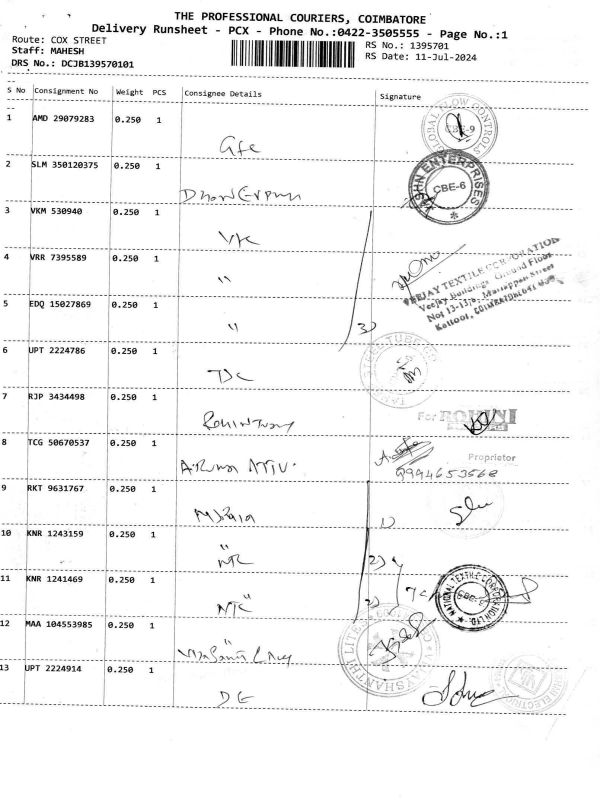 THE PROFESSIONAL COURIERS, COIMBATORE
Delivery Runsheet - PCX - Phone No.:0422-3505555 - Page No.:1
Route: COX STREET
Staff: MAHESH
DRS No.: DCJB139570101
RS No.: 1395701
RS Date: 11-Jul-2024
S No Consignment No Weight PCS Consignee Details Signature
1 AMD 29079283 0.250 1 Gfc
GLOBAL FLOW CONTROLS
CBE-9
2 SLM 350120375 0.250 1
ENTERPRISES
CBE-6
3 VKM 530940 0.250 1 VTC
4 VRR 7395589 0.250 1 "
VEEJAY TEXTILE CORPORATION
Veejay Buildings Ground Floor
No: 13-13/6, Mariappan Street
Kattoor, COIMBATORE-641 009
5 EDQ 15027869 0.250 1 " 3)
6 UPT 2224786 0.250 1 TSC
7 RJP 3434498 0.250 1
For ROHINI
8 TCG 50670537 0.250 1
Proprietor
9994653568
9 RKT 9631767 0.250 1 1)
10 KNR 1243159 0.250 1 " NTC 2)
11 KNR 1241469 0.250 1 NTC "
NATIONAL TEXTILE CORPORATION LTD.
CBE-9
12 MAA 104553985 0.250 1 "
13 UPT 2224914 0.250 1 DE